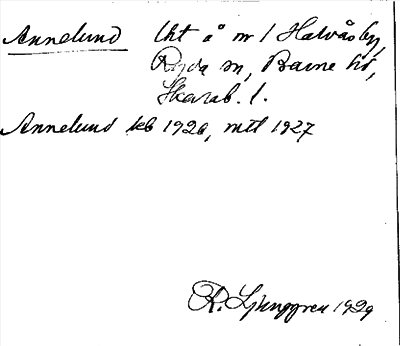 Annelund lht å nr 1 Halvåsby,
Ryda sn, Barne hd,
Skarab. l.
Annelund jeb 1920, mtl 1927
R. Ljunggren 1929